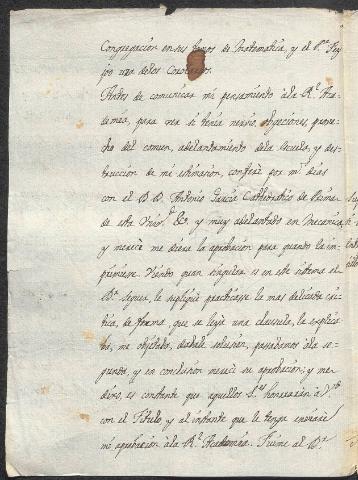 Congregacion en sus ramos de Matematica, y el P.e Fey
joo uno de los
Antes de comunicar mi pensamiento à la R.l Aca-
demia, para ver si tenia reparo, objeciones, prove-
cho del comun, adelantamiento de la Escuela, y des-
truccion de mi estimacion, conferì por m.s dias
con el D.D. Antonio Garcia Cathedratico de Prima
de esta Univ.d &c. y muy adelantado en Mecanica,
y mereci me diera la aprobacion para quando la im-
primiese. Viendo quan singular es en este sistema el
D.r le supliquè practicase la mas delicada cri-
tica, de forma, que se leyò una clausula, la explica-
ba, me objetaba, dabale solucion, pasabamos à la se-
gunda, y en conclusion mereci su aprobacion; y
es constante que aquellos S.res honraràn à
con el Titulo, y al instante que le tenga enviarè
mi aprobacion à la R.l Academia. Fuime al D.r